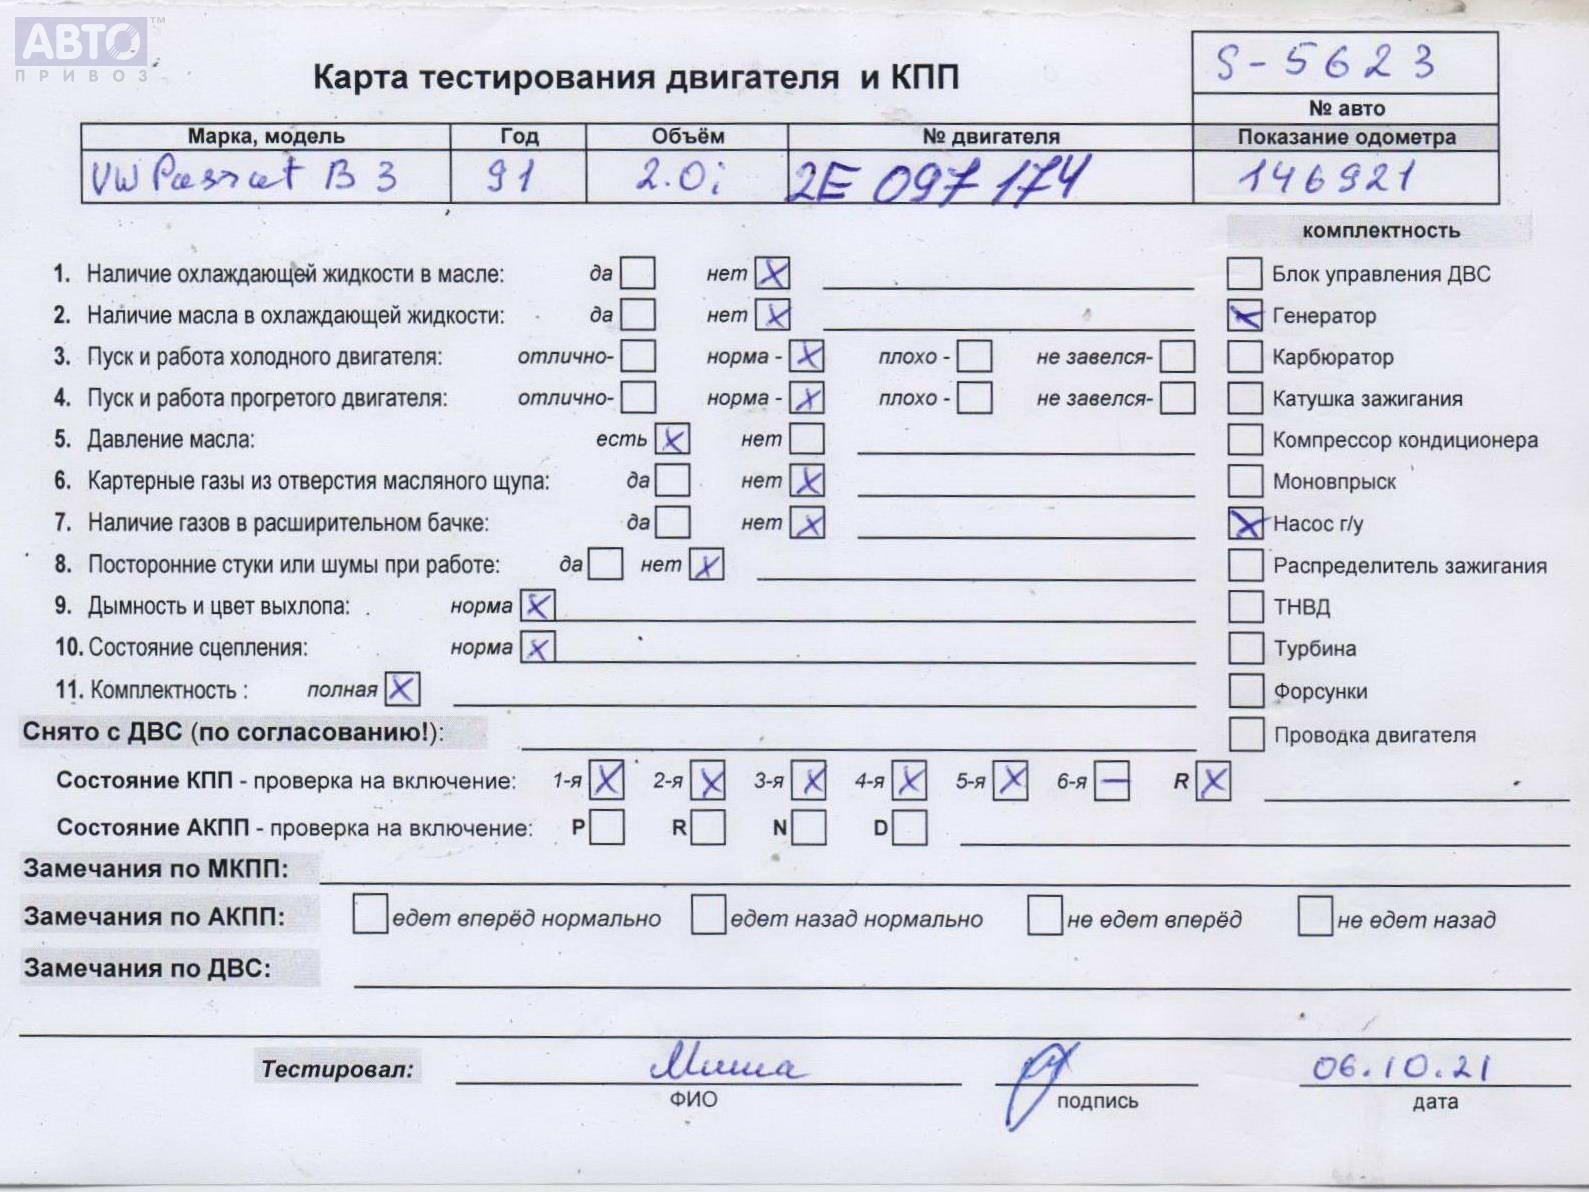 АВТО™
ПРИВОЗ
Карта тестирования двигателя и КПП
S-5623
№ авто
Марка, модель Год Объём № двигателя Показание одометра
VW Passat B3 91 2.0i 2E 097 174 146921
комплектность
1. Наличие охлаждающей жидкости в масле: да нет X Блок управления ДВС
2. Наличие масла в охлаждающей жидкости: да нет X X Генератор
3. Пуск и работа холодного двигателя: отлично- норма - X плохо - не завелся- Карбюратор
4. Пуск и работа прогретого двигателя: отлично- норма - X плохо - не завелся- Катушка зажигания
5. Давление масла: есть X нет Компрессор кондиционера
6. Картерные газы из отверстия масляного щупа: да нет X Моновпрыск
7. Наличие газов в расширительном бачке: да нет X X Насос г/у
8. Посторонние стуки или шумы при работе: да нет X Распределитель зажигания
9. Дымность и цвет выхлопа: . норма X ТНВД
10. Состояние сцепления: норма X Турбина
11. Комплектность : полная X Форсунки
Снято с ДВС (по согласованию!): Проводка двигателя
Состояние КПП - проверка на включение: 1-я X 2-я X 3-я X 4-я X 5-я X 6-я — R X
Состояние АКПП - проверка на включение: P R N D
Замечания по МКПП:
Замечания по АКПП: едет вперёд нормально едет назад нормально не едет вперёд не едет назад
Замечания по ДВС:
Тестировал: Миша 06.10.21
ФИО подпись дата